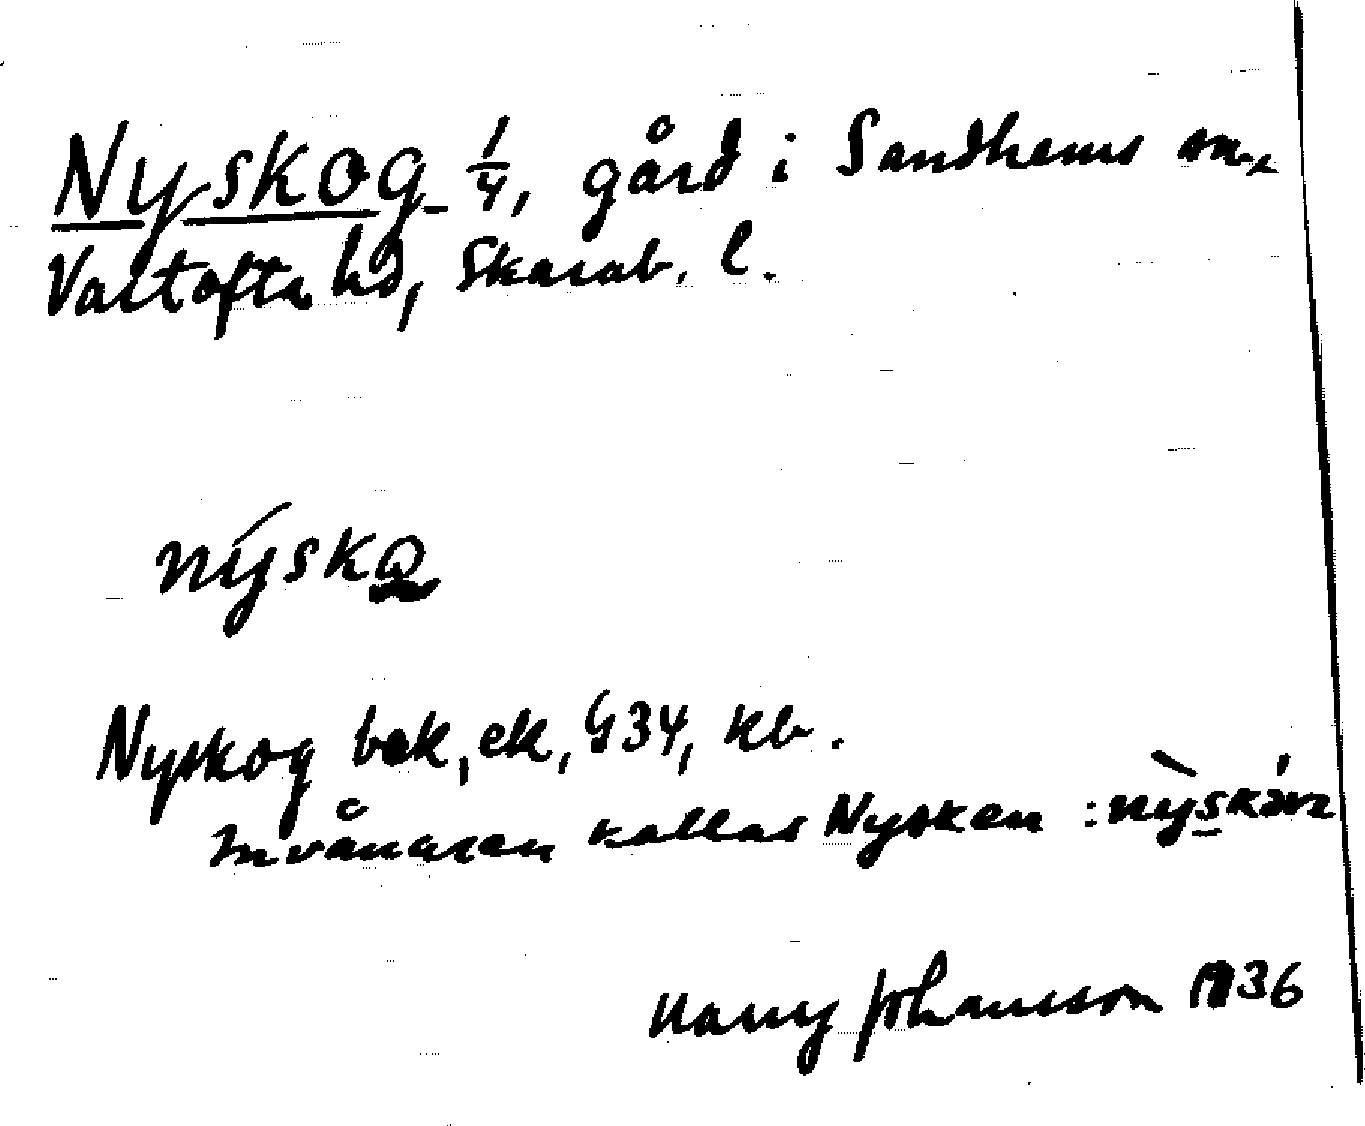 Nyskog 1/4, gård i Sandhems sn.,
Vartofta hd, Skarab. l.
nýskо̱
Nyskog bek, ek, G34, kb.
Invånaren kallas Nysken :
Harry Johansson 1936